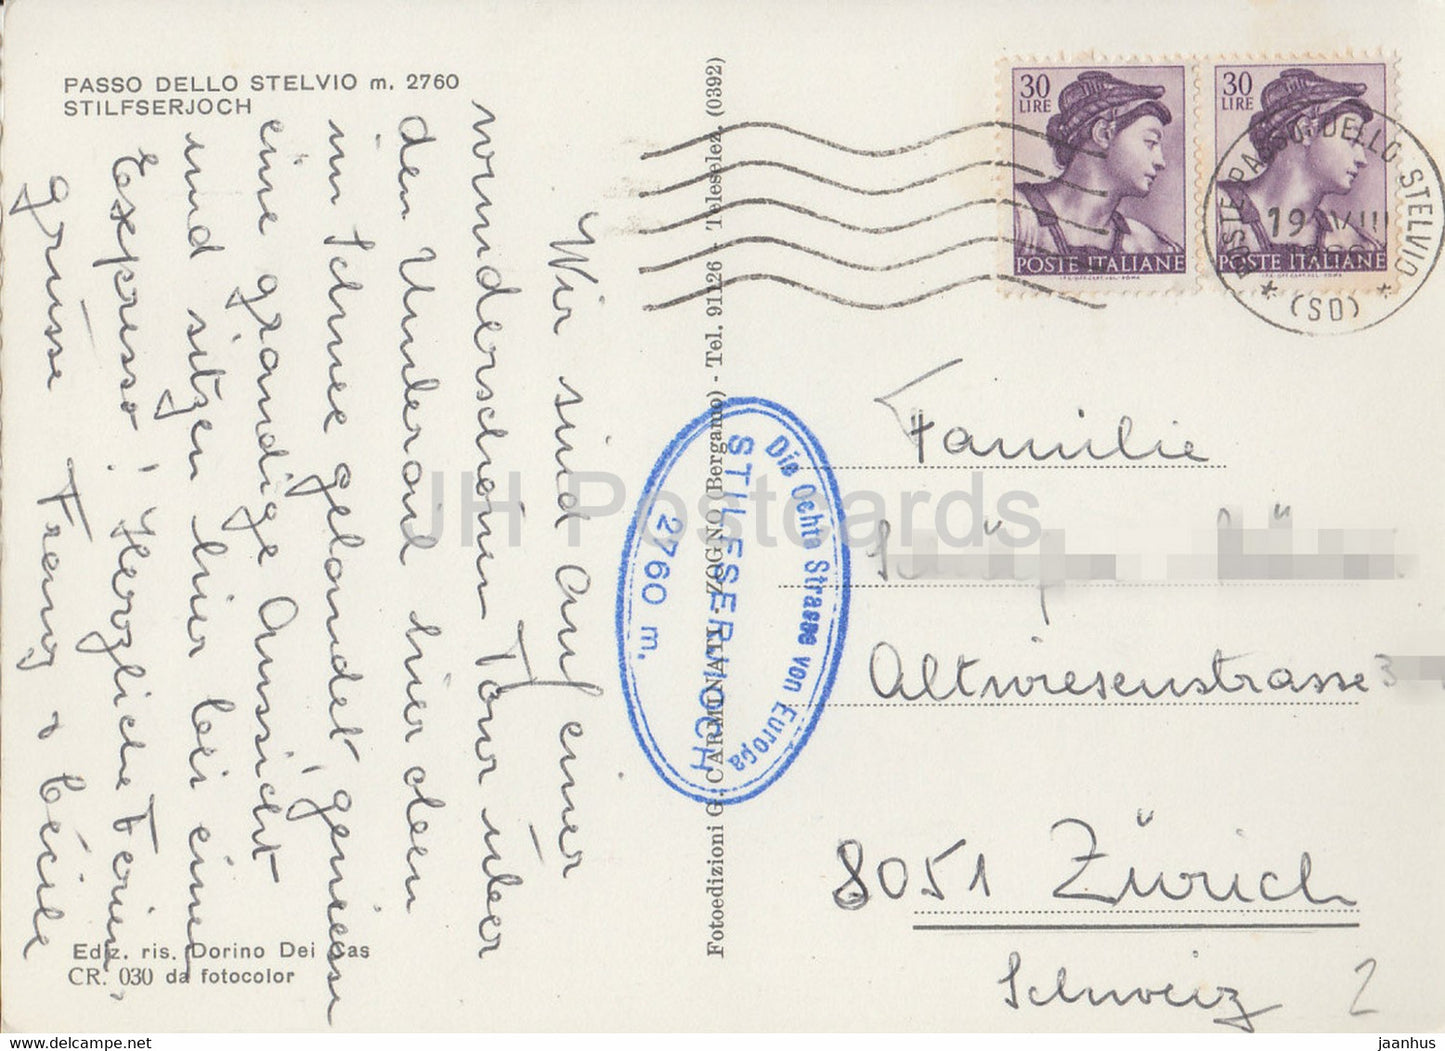 PASSO DELLO STELVIO m. 2760
STILFSERJOCH
Wir sind auf einer
wunderschönen Tour über
den Umbrail hier oben
im Schnee gelandet, geniessen
eine grandige Aussicht
und sitzen hier bei einem
Expresso! Herzliche Ferien-
grüsse
&
Cécile
Fotoedizioni G. CARMINATI - ZOGNO (Bergamo) - Tel. 91126 - Teleselez. (0392)
30
LIRE
POSTE ITALIANE
30
LIRE
POSTE ITALIANE
POSTE PASSO DELLO STELVIO
19 VIII
(SO)
Die Öchte Strasse von Europa
STILFSERJOCH
2760 m.
Familie
Altwiesenstrasse 3
8051 Zürich
Schweiz
2
Ediz. ris. Dorino Dei Cas
CR. 030 da fotocolor
JH Postcards
www.jhpostcards.com
jaanhus